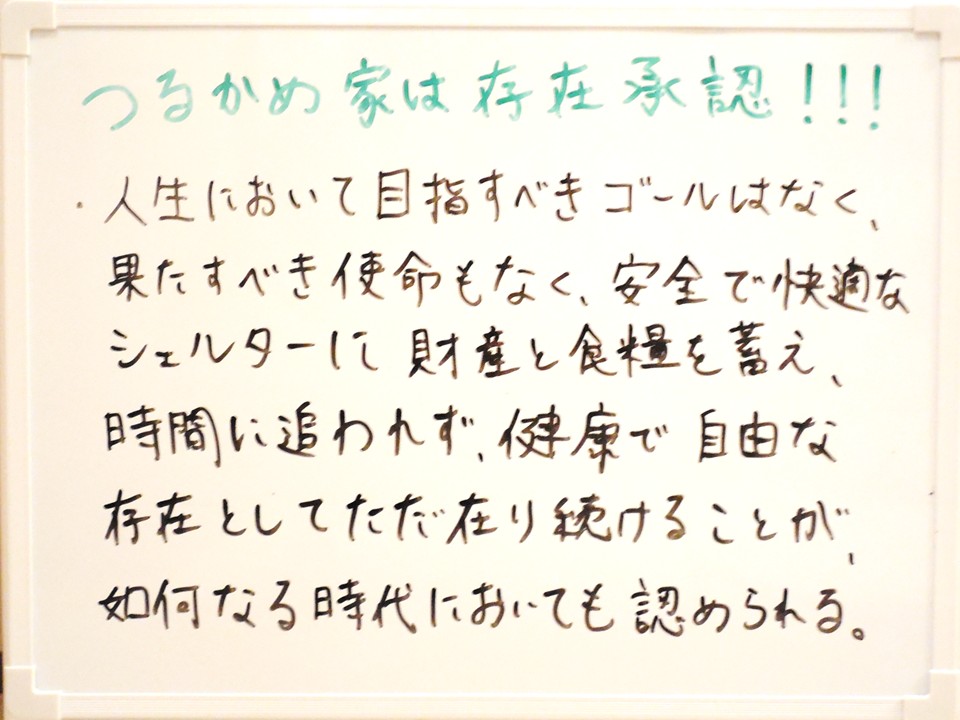 つるかめ家は存在承認!!!
・人生において目指すべきゴールはなく、
果たすべき使命もなく、安全で快適な
シェルターに財産と食糧を蓄え、
時間に追われず、健康で自由な
存在としてただ在り続けることが、
如何なる時代においても認められる。